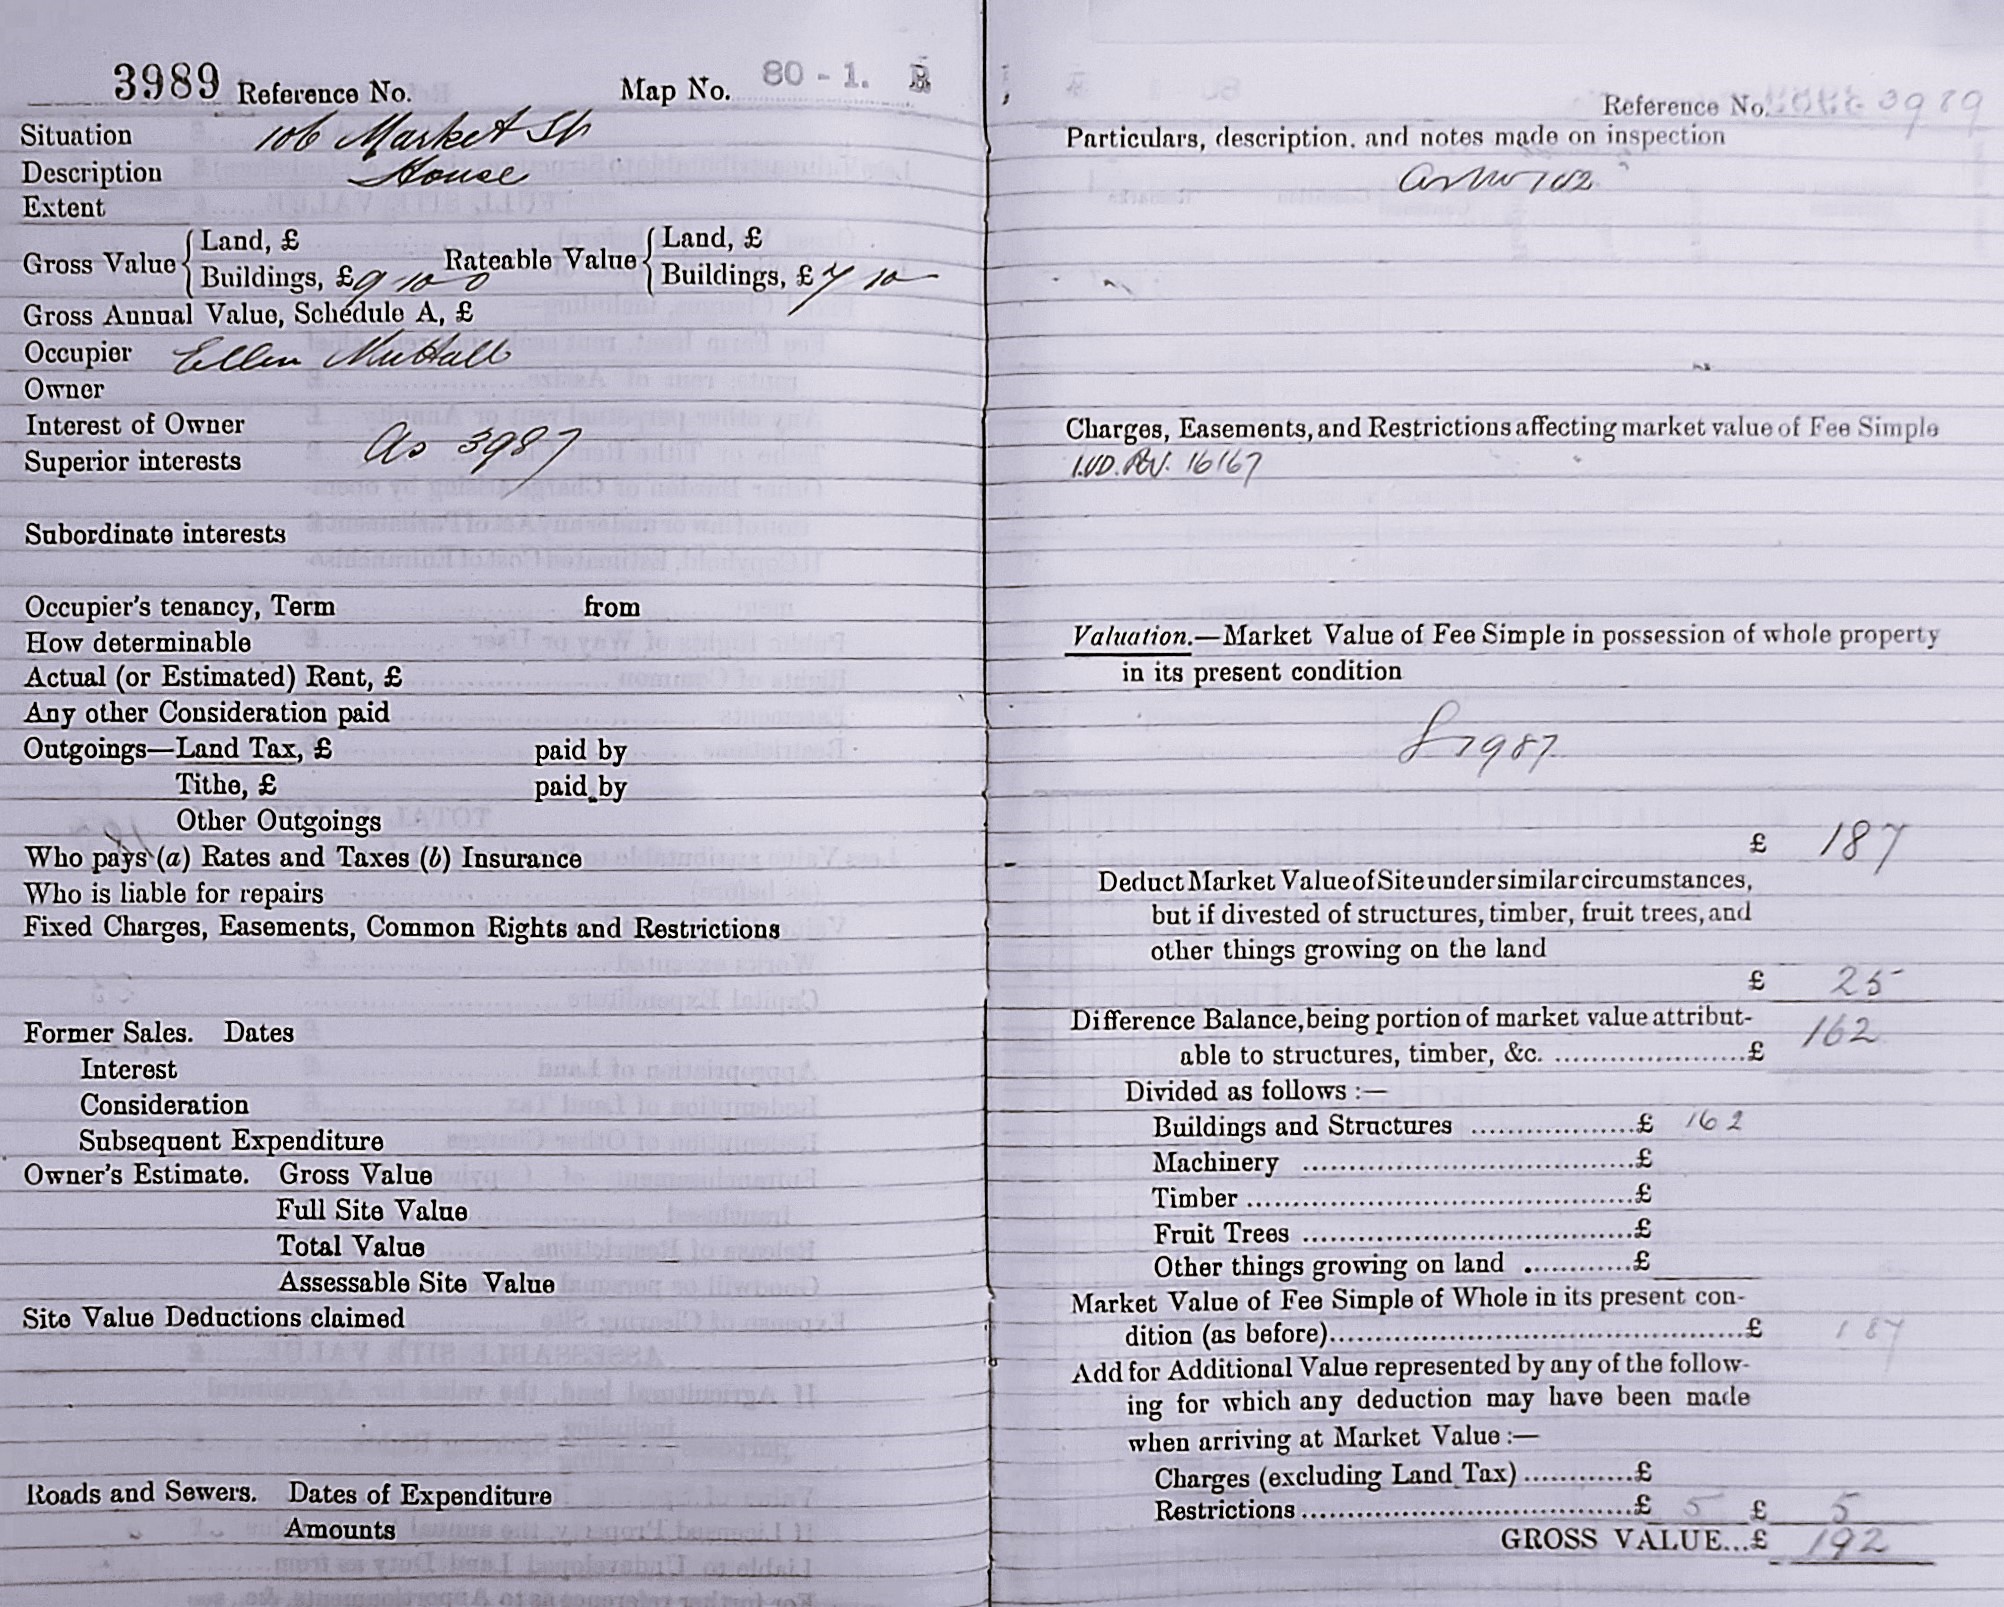 3989 Reference No. Map No. 80 - 1. B
Situation 106 Market St
Description House
Extent
Gross Value { Land, £ Rateable Value { Land, £
Buildings, £ 9 10 0 Buildings, £ 7 10 –
Gross Annual Value, Schedule A, £
Occupier Ellen Nuttall
Owner
Interest of Owner
Superior interests As 3987
Subordinate interests
Occupier's tenancy, Term from
How determinable
Actual (or Estimated) Rent, £
Any other Consideration paid
Outgoings—Land Tax, £ paid by
Tithe, £ paid by
Other Outgoings
Who pays (a) Rates and Taxes (b) Insurance
Who is liable for repairs
Fixed Charges, Easements, Common Rights and Restrictions
Former Sales. Dates
Interest
Consideration
Subsequent Expenditure
Owner's Estimate. Gross Value
Full Site Value
Total Value
Assessable Site Value
Site Value Deductions claimed
Roads and Sewers. Dates of Expenditure
Amounts
Reference No. 3989
Particulars, description, and notes made on inspection
as No 102
Charges, Easements, and Restrictions affecting market value of Fee Simple
16167
Valuation.—Market Value of Fee Simple in possession of whole property
in its present condition
£ 187
Deduct Market Value of Site under similar circumstances,
but if divested of structures, timber, fruit trees, and
other things growing on the land
£ 25
Difference Balance, being portion of market value attribut-
able to structures, timber, &c. ....................£ 162
Divided as follows :—
Buildings and Structures ..................£ 162
Machinery ....................................£
Timber ..........................................£
Fruit Trees ....................................£
Other things growing on land ............£
Market Value of Fee Simple of Whole in its present con-
dition (as before)............................................£ 187
Add for Additional Value represented by any of the follow-
ing for which any deduction may have been made
when arriving at Market Value :—
Charges (excluding Land Tax) ............£
Restrictions ....................................£ 5 £ 5
GROSS VALUE...£ 192